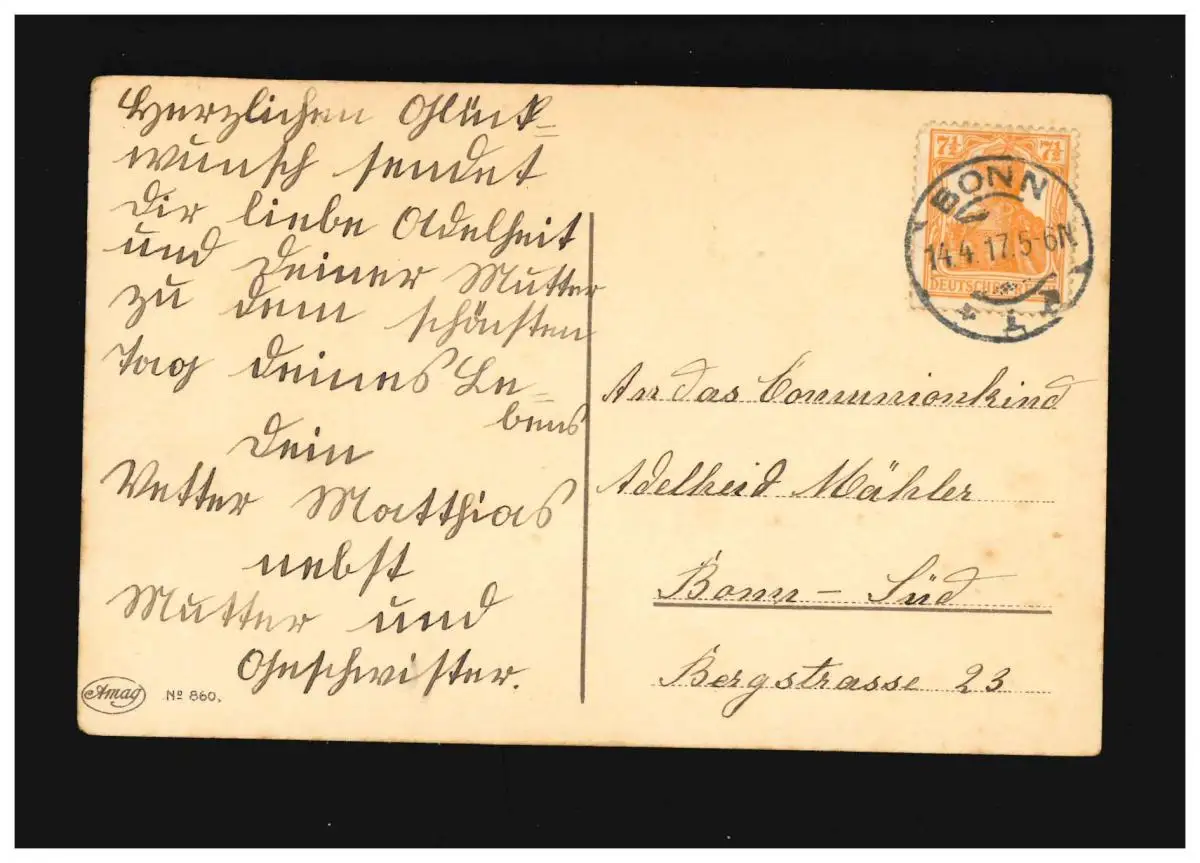 Herzlichen Glück=
wunsch sendet
Dir liebe Adelheit
und Deiner Mutter
zu dem schönsten
Tag Deines Le=
bens
Dein
Vetter Matthias
nebst
Mutter und
Geschwister.
Amag No 860.
7½ 7½
BONN
14.4.17.5-6N
DEUTSCHES REICH
An das Communionkind
Adelheid Mähler
Bonn - Süd
Bergstrasse 23